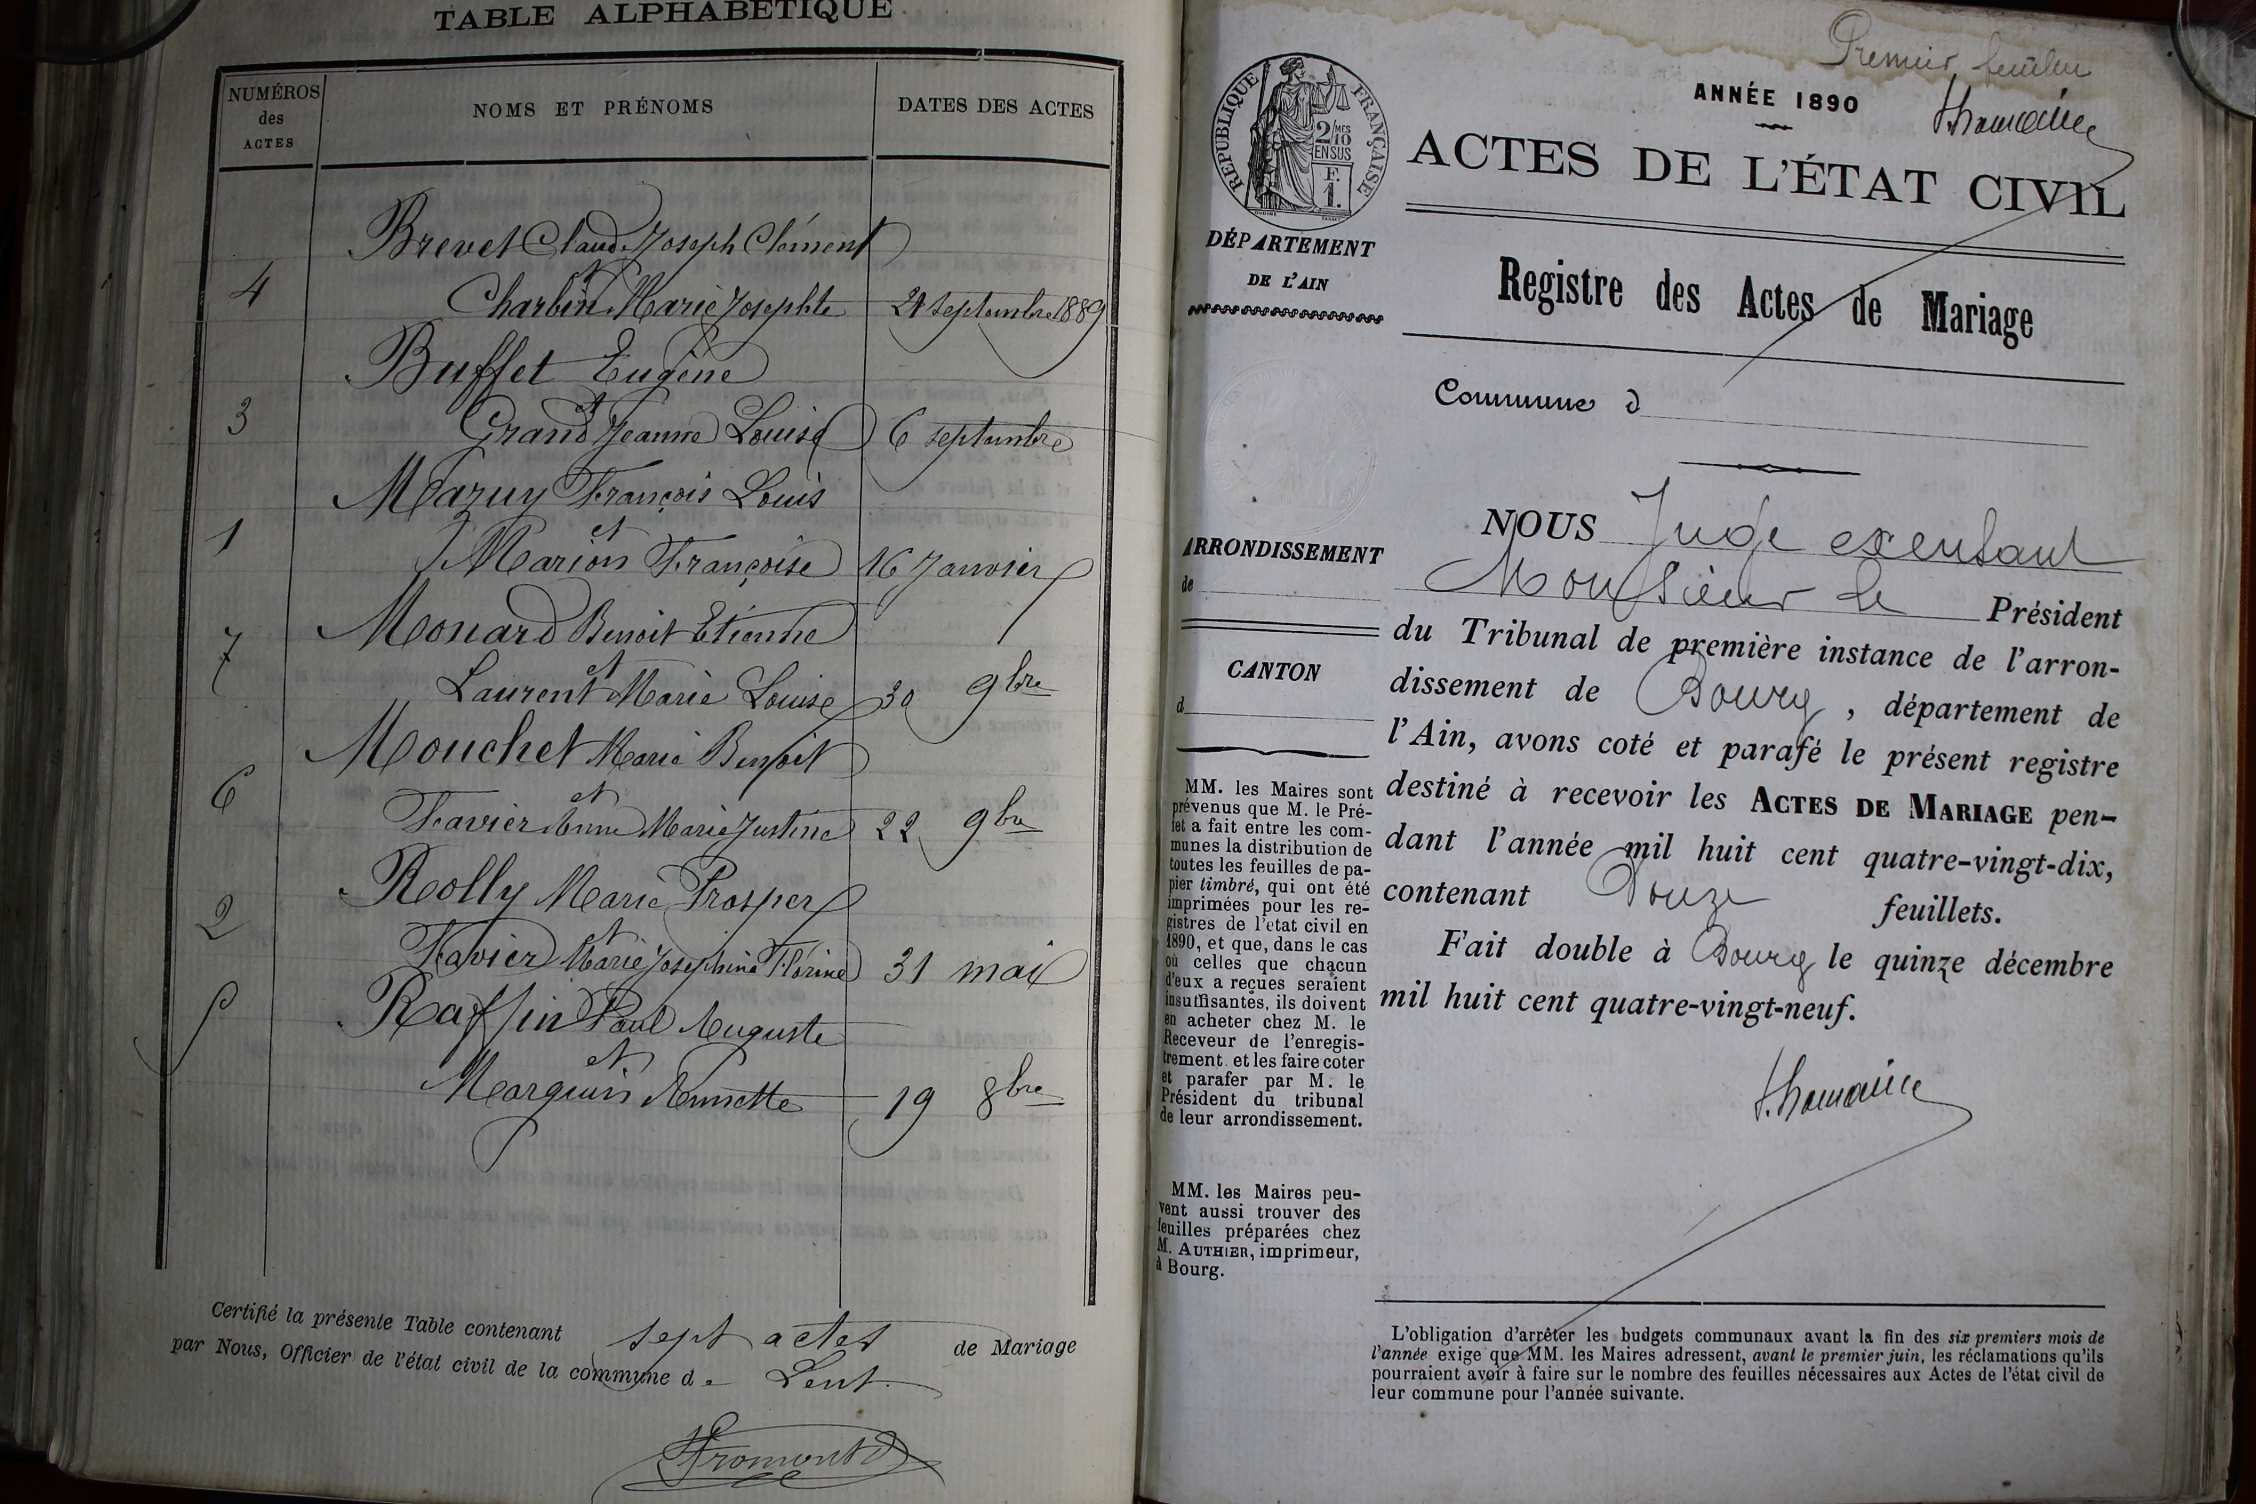 TABLE ALPHABÉTIQUE
NUMÉROS
des
ACTES
NOMS ET PRÉNOMS
DATES DES ACTES
Brevet Claude Joseph Clément
et
4 Charbin Marie Josephte 21 septembre 1889
Buffet Eugène
et
3 Grand Jeanne Louise 6 septembre
Mazuy François Louis
et
1 Marion Françoise 16 Janvier
Monard Benoit Etienne
et
7 Laurent Marie Louise 30 9bre
Mouchet Marie Benoit
et
6 Favier Anne Marie Justine 22 9bre
Rolly Marie Prosper
et
2 Favier Marie Josephine Florine 31 mai
Raffin Paul Auguste
et
5 Marguin Annette 19 8bre
Certifié la présente Table contenant sept actes de Mariage
par Nous, Officier de l'état civil de la commune de Lent.
Fromont
Premier feuillet
ANNÉE 1890
RÉPUBLIQUE FRANÇAISE
2/10 MES
EN SUS
F.
1.
ACTES DE L'ÉTAT CIVIL
DÉPARTEMENT
DE L'AIN
Registre des Actes de Mariage
Commune d
ARRONDISSEMENT
de
CANTON
d
MM. les Maires sont
prévenus que M. le Pré-
fet a fait entre les com-
munes la distribution de
toutes les feuilles de pa-
pier timbré, qui ont été
imprimées pour les re-
gistres de l'état civil en
1890, et que, dans le cas
où celles que chacun
d'eux a reçues seraient
insuffisantes, ils doivent
en acheter chez M. le
Receveur de l'enregis-
trement et les faire coter
et parafer par M. le
Président du tribunal
de leur arrondissement.
MM. les Maires peu-
vent aussi trouver des
feuilles préparées chez
M. AUTHIER, imprimeur,
à Bourg.
NOUS Juge exemtant
Monsieur le Président
du Tribunal de première instance de l'arron-
dissement de Bourg, département de
l'Ain, avons coté et parafé le présent registre
destiné à recevoir les ACTES DE MARIAGE pen-
dant l'année mil huit cent quatre-vingt-dix,
contenant Douze feuillets.
Fait double à Bourg le quinze décembre
mil huit cent quatre-vingt-neuf.
L'obligation d'arrêter les budgets communaux avant la fin des six premiers mois de
l'année exige que MM. les Maires adressent, avant le premier juin, les réclamations qu'ils
pourraient avoir à faire sur le nombre des feuilles nécessaires aux Actes de l'état civil de
leur commune pour l'année suivante.